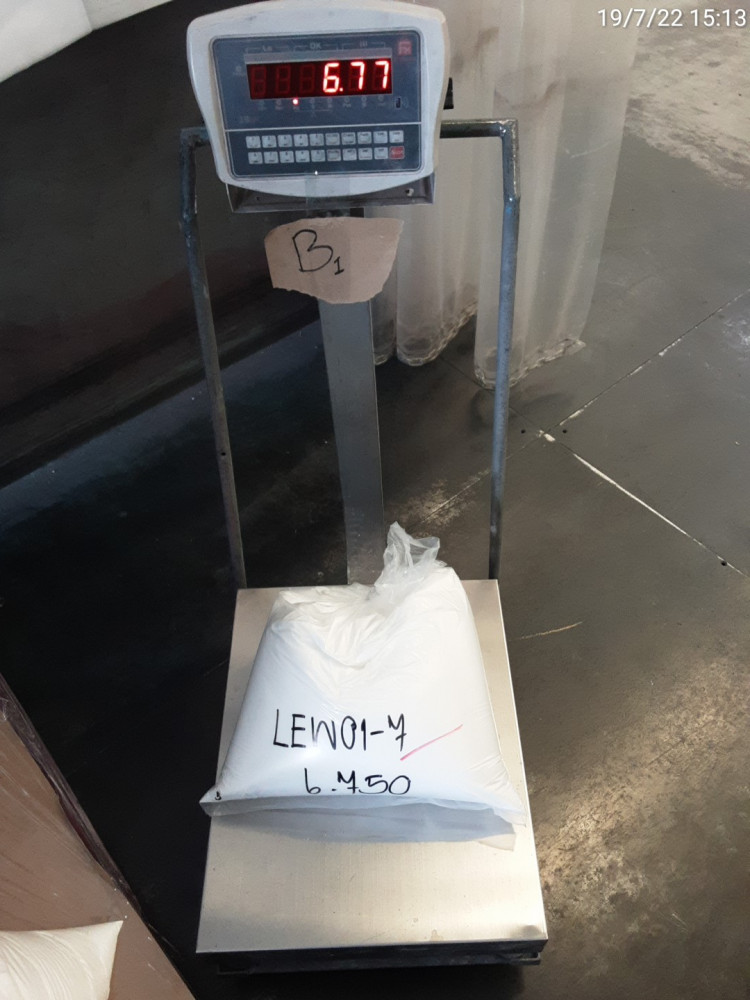 19/7/22 15:13
6.77
B1
LEW01-7
6.750